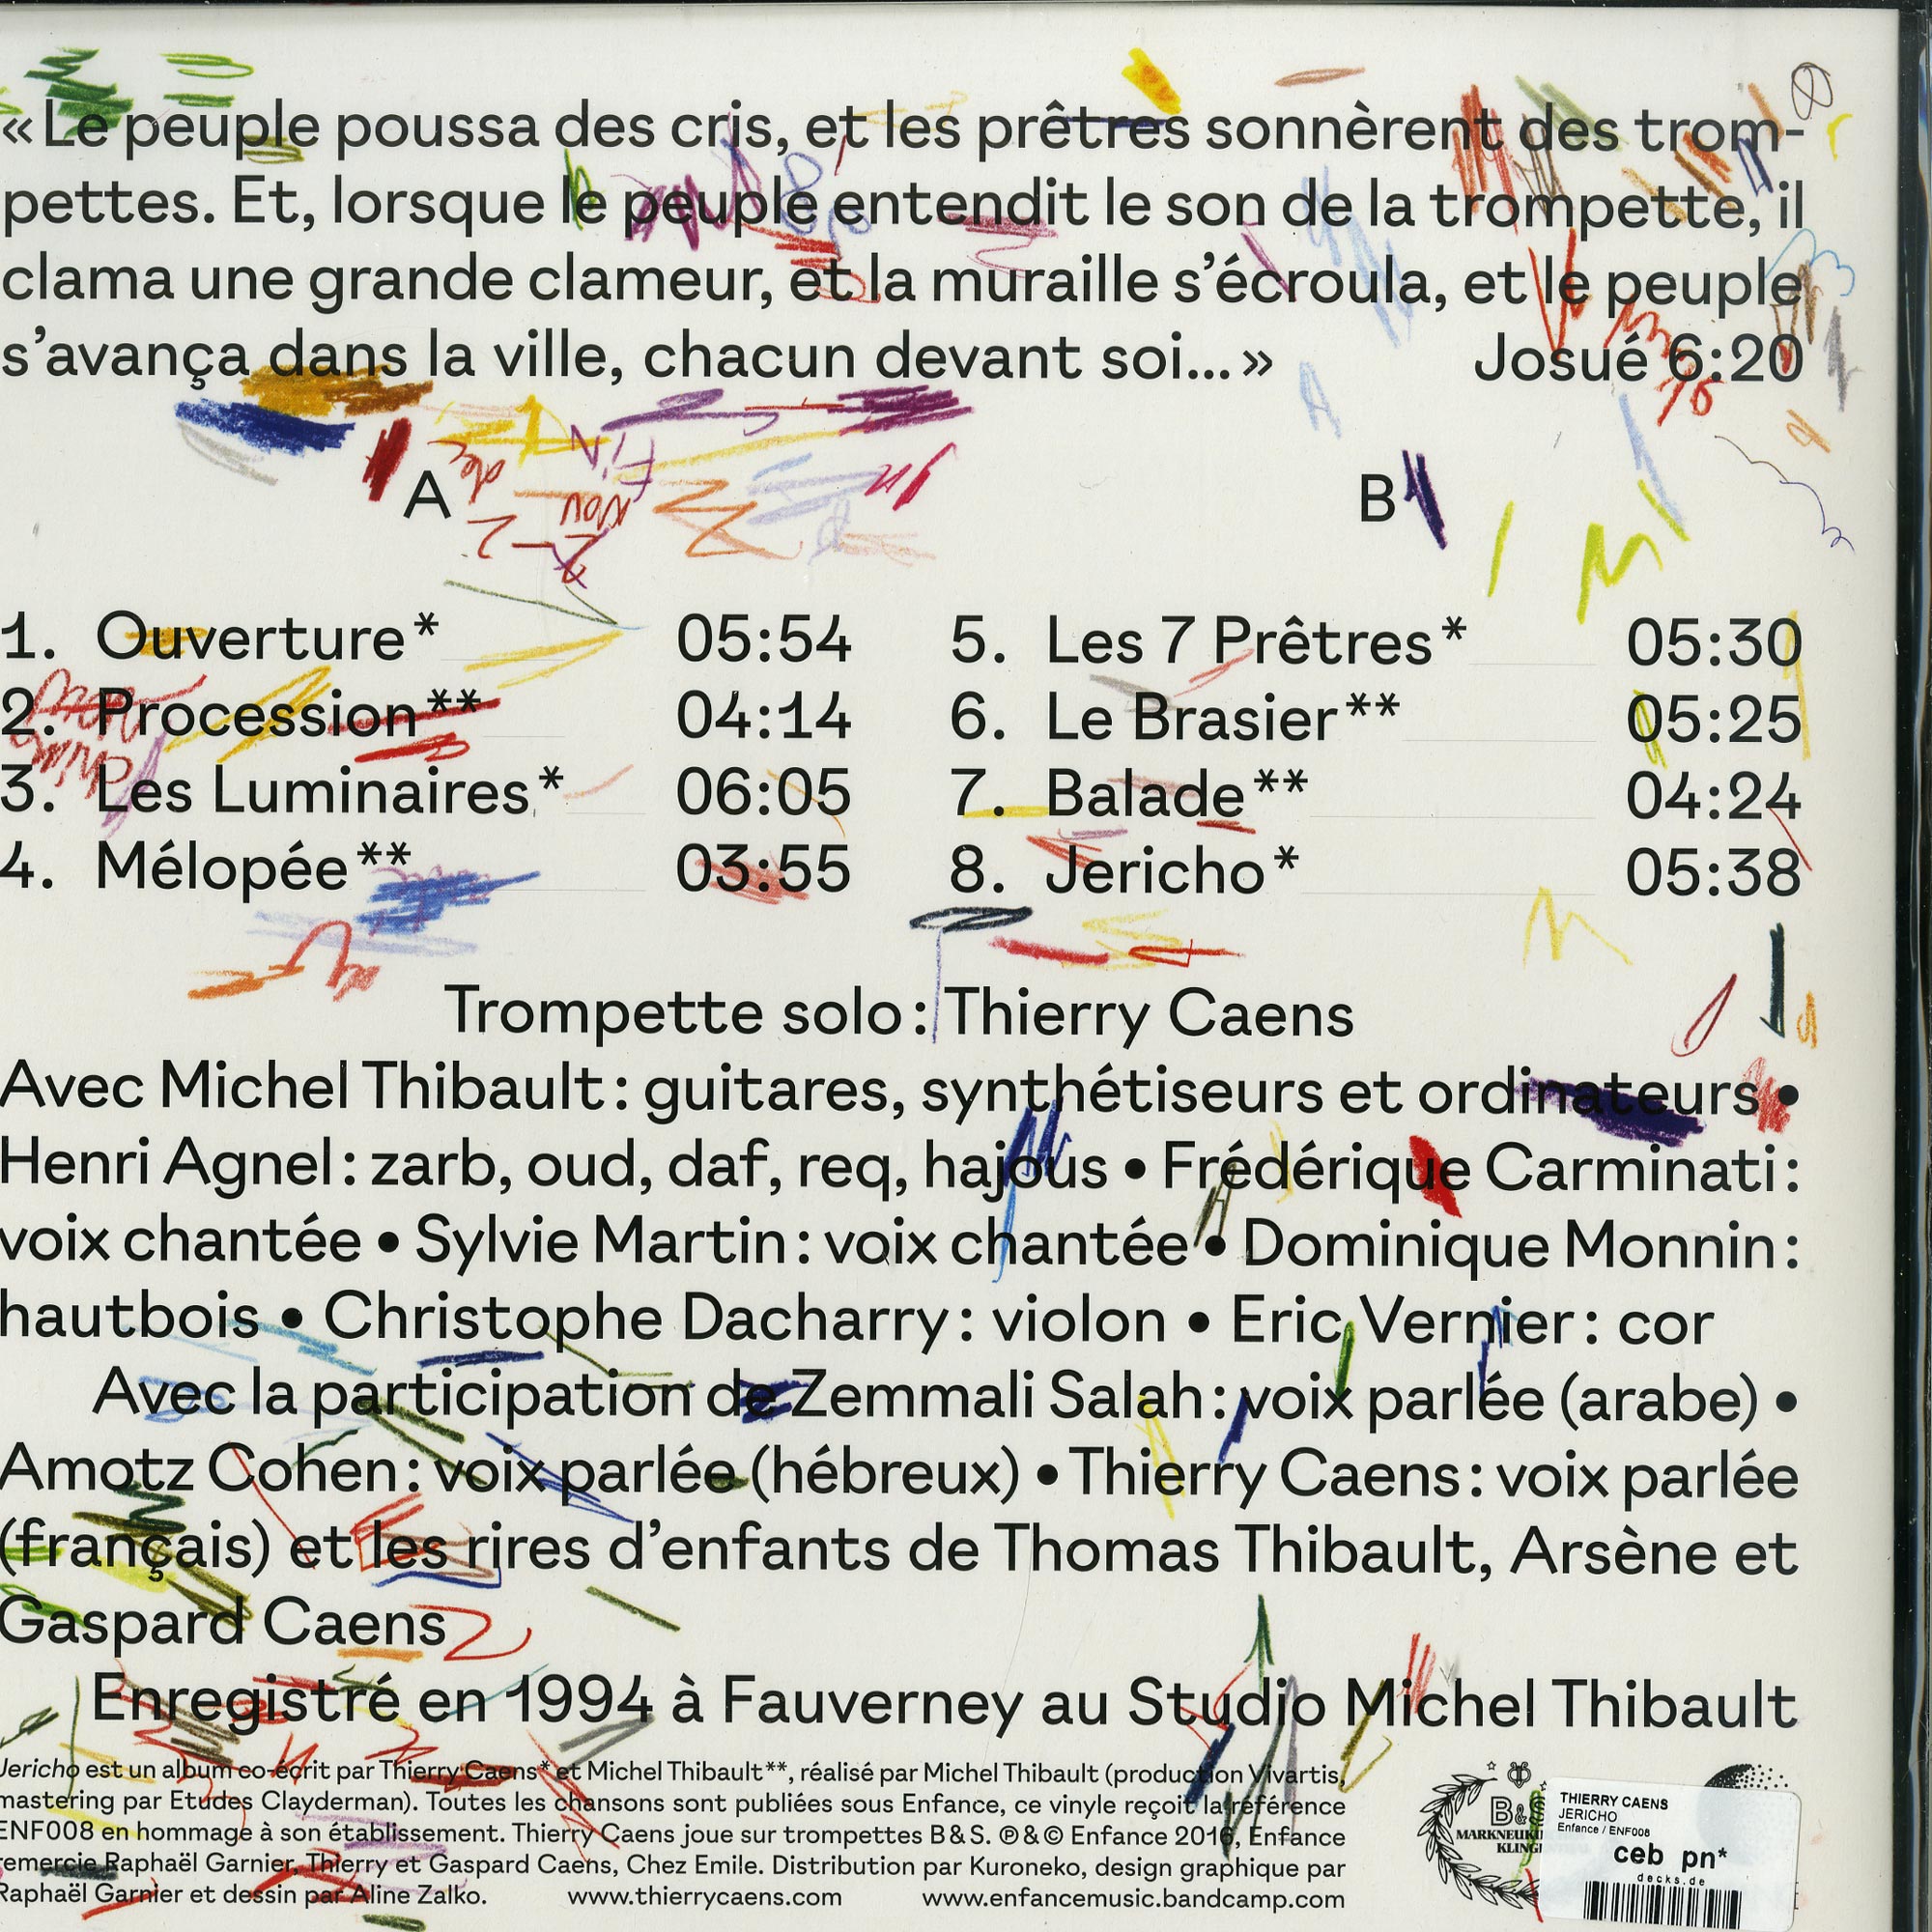 «Le peuple poussa des cris, et les prêtres sonnèrent des trom-
pettes. Et, lorsque le peuple entendit le son de la trompette, il
clama une grande clameur, et la muraille s’écroula, et le peuple
s’avança dans la ville, chacun devant soi...» Josué 6:20
A B
1. Ouverture* 05:54 5. Les 7 Prêtres* 05:30
2. Procession** 04:14 6. Le Brasier** 05:25
3. Les Luminaires* 06:05 7. Balade** 04:24
4. Mélopée** 03:55 8. Jericho* 05:38
Trompette solo: Thierry Caens
Avec Michel Thibault: guitares, synthétiseurs et ordinateurs •
Henri Agnel: zarb, oud, daf, req, hajous • Frédérique Carminati:
voix chantée • Sylvie Martin: voix chantée • Dominique Monnin:
hautbois • Christophe Dacharry: violon • Eric Vernier: cor
Avec la participation de Zemmali Salah: voix parlée (arabe) •
Amotz Cohen: voix parlée (hébreux) • Thierry Caens: voix parlée
(français) et les rires d’enfants de Thomas Thibault, Arsène et
Gaspard Caens
Enregistré en 1994 à Fauverney au Studio Michel Thibault
Jericho est un album co-écrit par Thierry Caens* et Michel Thibault**, réalisé par Michel Thibault (production Vivartis,
mastering par Etudes Clayderman). Toutes les chansons sont publiées sous Enfance, ce vinyle reçoit la référence
ENF008 en hommage à son établissement. Thierry Caens joue sur trompettes B&S. ℗&© Enfance 2016, Enfance
remercie Raphaël Garnier, Thierry et Gaspard Caens, Chez Emile. Distribution par Kuroneko, design graphique par
Raphaël Garnier et dessin par Aline Zalko. www.thierrycaens.com www.enfancemusic.bandcamp.com
B&S
THIERRY CAENS
JERICHO
Enfance / ENF008
ceb pn*
decks.de